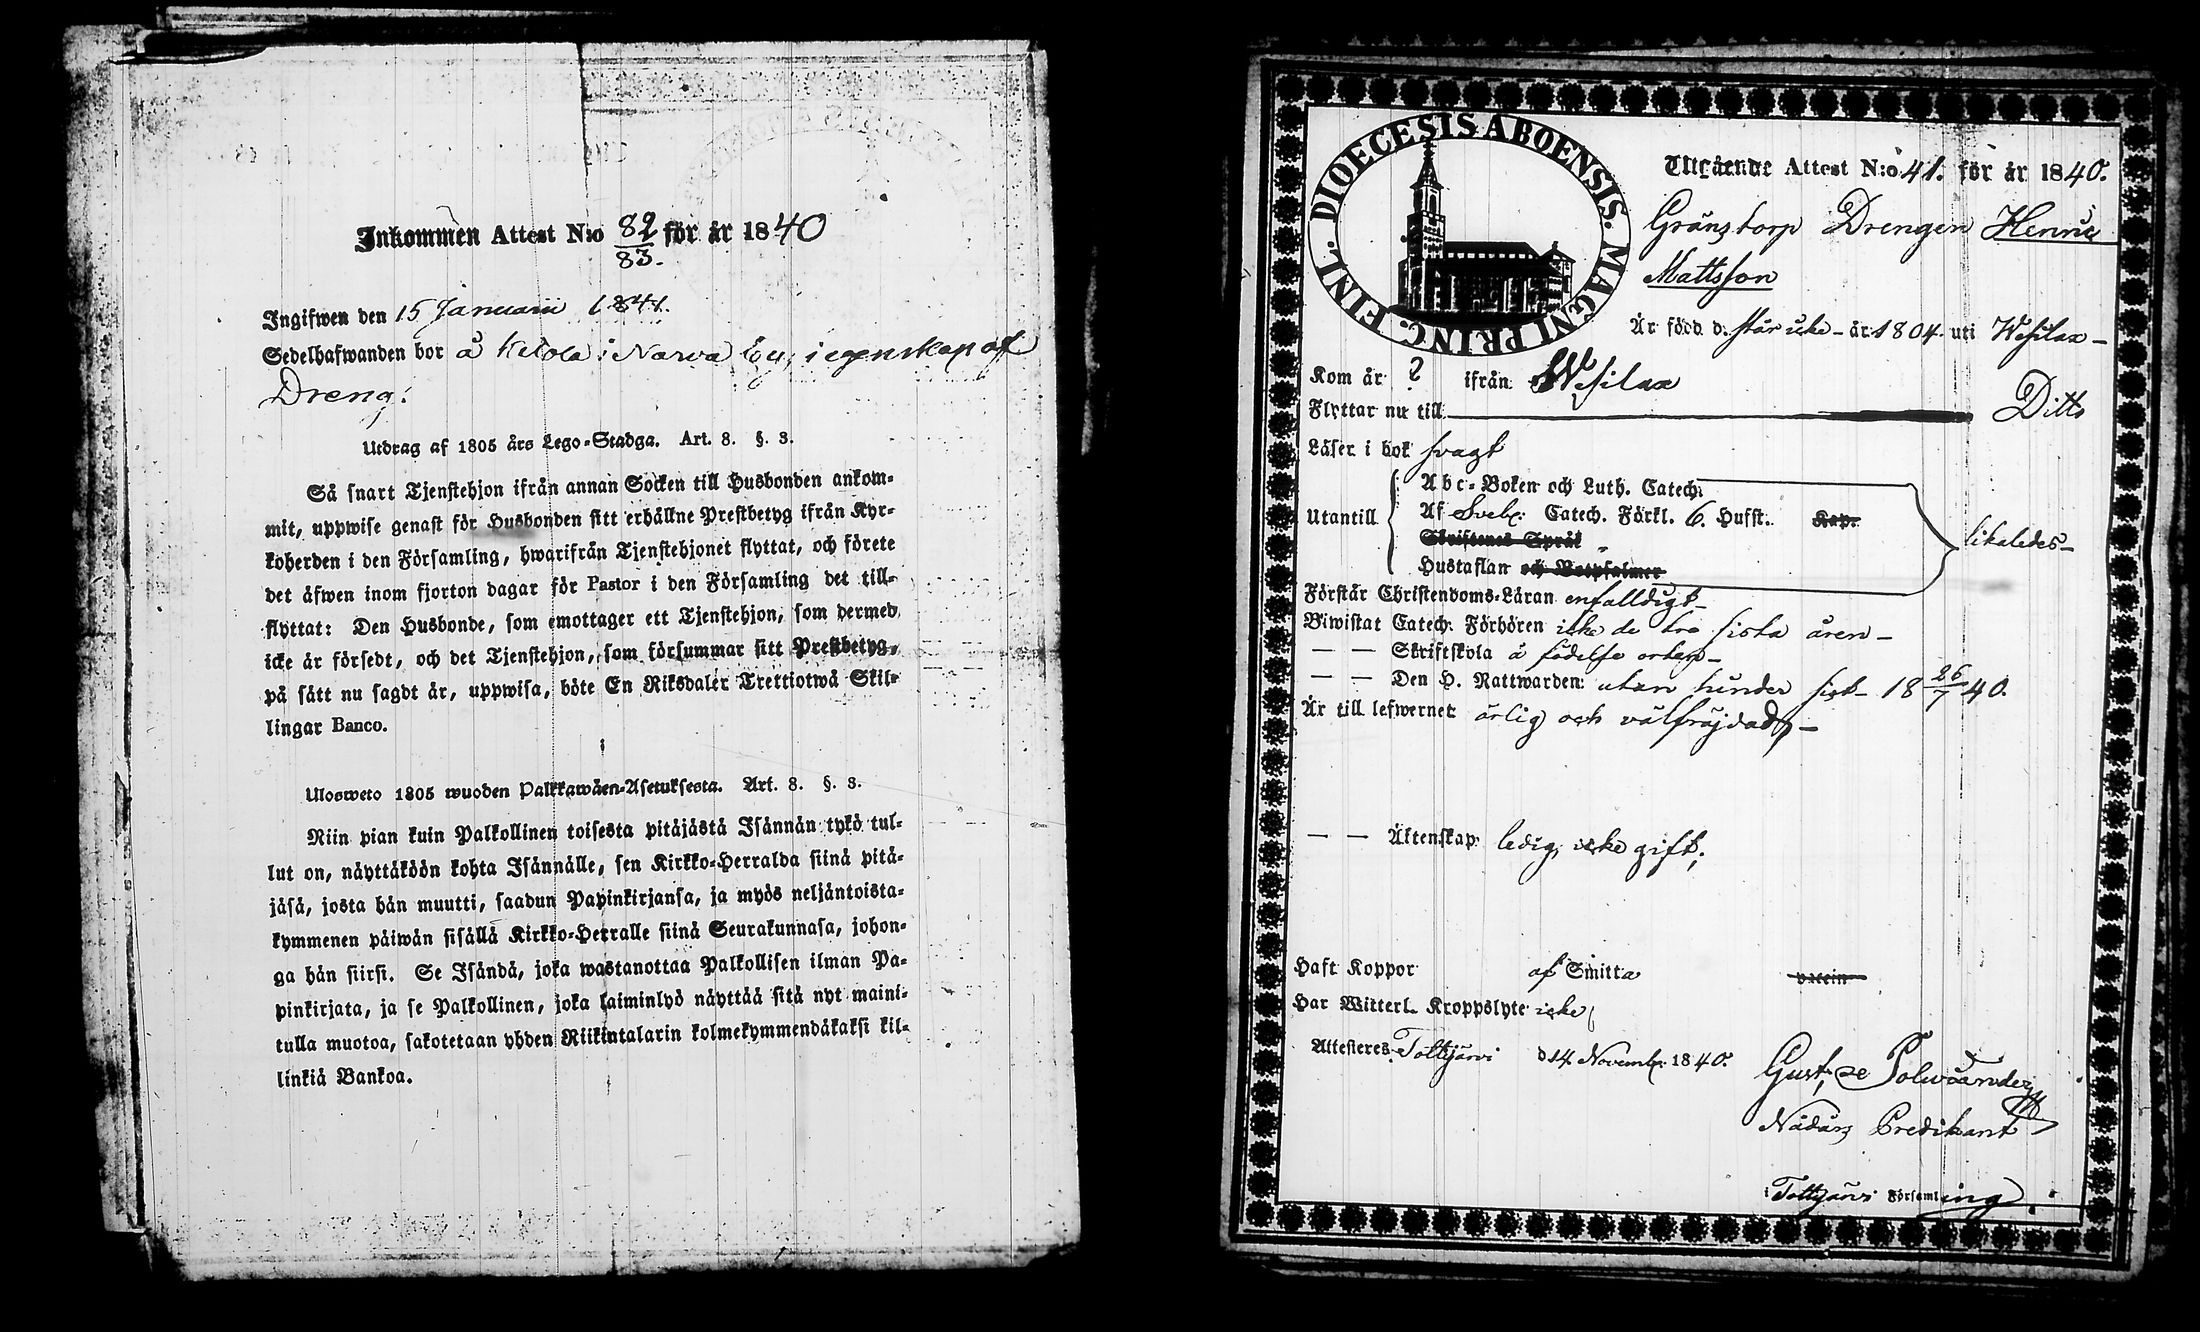 Inkommen Attest N:o 82 för år 1840
83.
Ingifwen den 15 Januarii 1841.
Sedelhafwanden bor å Kelola i Narva by, i egenskap af
Dreng.
Utdrag af 1805 års Lego-Stadga. Art. 8. §. 3.
Så snart Tjenstehjon ifrån annan Socken till Husbonden ankom-
mit, uppwise genast för Husbonden sitt erhållne Prestbetyg ifrån Kyr-
koherden i den Församling, hwarifrån Tjenstehjonet flyttat, och förete
det äfwen inom fjorton dagar för Pastor i den Församling det till-
flyttat: Den Husbonde, som emottager ett Tjenstehjon, som dermed
icke är försedt, och det Tjenstehjon, som försummar sitt Prestbetyg,
på sätt nu sagdt är, uppwisa, böte En Riksdaler Trettiotwå Skil-
lingar Banco.
Ulosweto 1805 wuoden Palkkawäen-Asetuksesta. Art. 8. §. 3.
Niin pian kuin Palkollinen toisesta pitäjästä Isännän tykö tul-
lut on, näyttäköön kohta Isännälle, sen Kirkko-Herralda siinä pitä-
jäsä, josta hän muutti, saadun Papinkirjansa, ja myös neljäntoista-
kymmenen päiwän sisällä Kirkko-Herralle siinä Seurakunnasa, johon-
ga hän siirsi. Se Isändä, joka wastanottaa Palkollisen ilman Pa-
pinkirjata, ja se Palkollinen, joka laiminlyö näyttää sitä nyt maini-
tulla muotoa, sakotetaan yhden Riikintalarin kolmekymmendäkaksi kil-
linkiä Bankoa.
DIOECESIS ABOENSIS. MAGNI PRINC. FINL.
Utgående Attest N:o 41. för år 1840.
Gränstorp Drengen Henric
Mattsson
Är född d. står icke - år 1804. uti Wesilax -
Kom år ? ifrån Wesilax
Flyttar nu till Ditto
Läser i bok svagt
Utantill
Abc-Boken och Luth. Catech.
Af Sveb. Catech. Förkl. 6. Hufst. Kap.
Skriftenes Språk
Hustaflan och Botpsalmer
likaledes -
Förstår Christendoms-Läran enfalldigt -
Biwistat Catech. Förhören icke de tre sista åren -
— — Skriftskola å födelse orten -
— — Den H. Nattwarden: utan hinder sist - 18 26/7 40.
Är till lefwernet ärlig och välfräjdad, -
— — Äktenskap ledig, icke gift,
Haft Koppor af Smitta vaccin
Har Witterl. Kroppslyte icke
Attesteres Tottijärvi d. 14. Novemb. 1840.
Gust. Polviander
Nådårs Predikant
i Tottijärvi Församling.